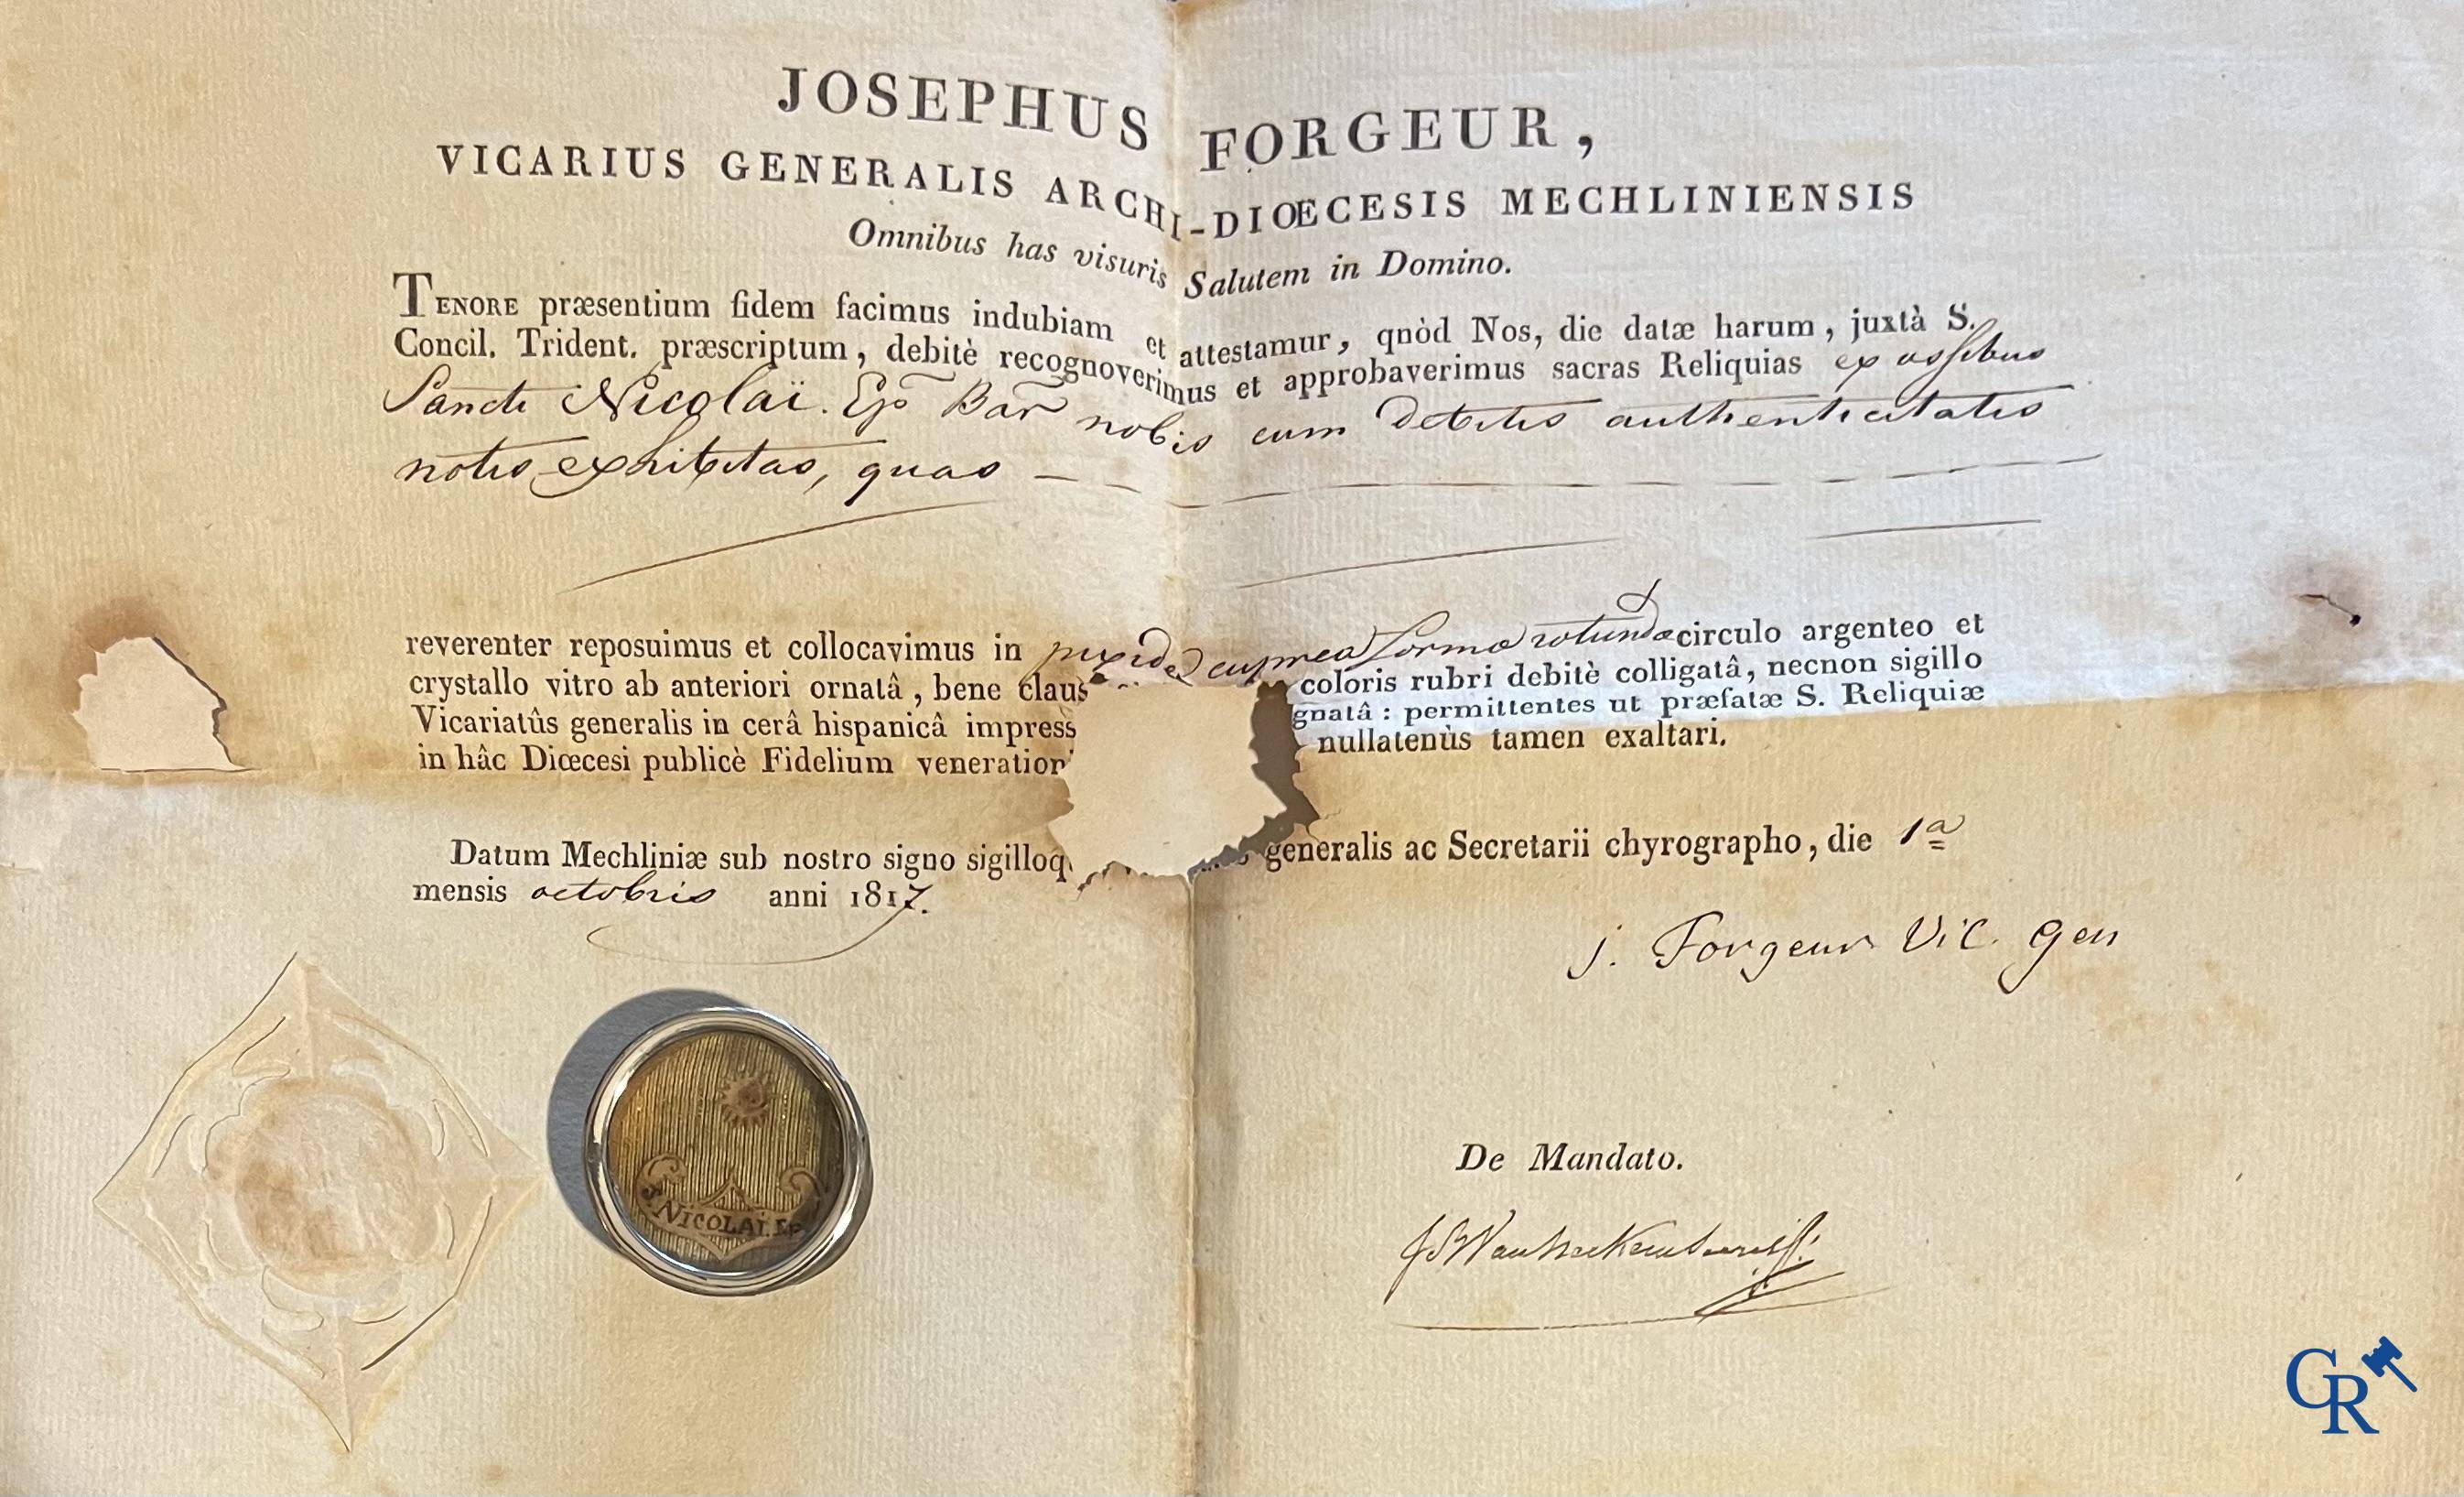 JOSEPHUS FORGEUR,
VICARIUS GENERALIS ARCHI-DIŒCESIS MECHLINIENSIS
Omnibus has visuris Salutem in Domino.
TENORE præsentium fidem facimus indubiam et attestamur, quòd Nos, die datæ harum, juxtà S.
Concil. Trident. præscriptum, debitè recognoverimus et approbaverimus sacras Reliquias ex ossibus
Sancti Nicolaï. Ep̃o Bar̃ nobis cum debitis authenticitatis
notis exhibitas, quas
reverenter reposuimus et collocavimus in pixide cuprea formæ rotundæ circulo argenteo et
crystallo vitro ab anteriori ornatâ, bene claus coloris rubri debitè colligatâ, necnon sigillo
Vicariatûs generalis in cerâ hispanicâ impress gnatâ : permittentes ut præfatæ S. Reliquiæ
in hâc Diœcesi publicè Fidelium veneration nullatenùs tamen exaltari.
Datum Mechliniæ sub nostro signo sigilloq generalis ac Secretarii chyrographo, die 1ª
mensis octobris anni 1817.
j. Forgeur Vic. gen
S. NICOLAI. Ep
De Mandato.
GR